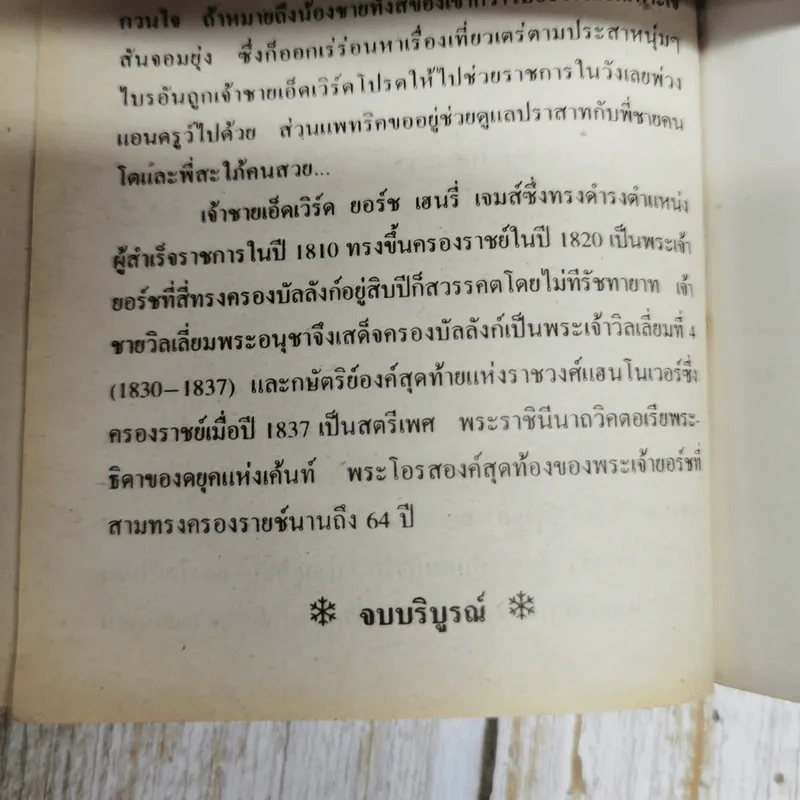 กวนใจ ถ้าหมายถึงน้องชายทั้งสี่ของเขา
สันจอมยุ่ง ซึ่งก็ออกเร่ร่อนหาเรื่องเที่ยวเตร่ตามประสาหนุ่มๆ
ไบรอันถูกเจ้าชายเอ็ดเวิร์ดโปรดให้ไปช่วยราชการในวังเลยพ่วง
แอนดรูว์ไปด้วย ส่วนแพทริคขออยู่ช่วยดูแลปราสาทกับพี่ชายคน
โตและพี่สะใภ้คนสวย...
เจ้าชายเอ็ดเวิร์ด ยอร์ช เฮนรี่ เจมส์ซึ่งทรงดำรงตำแหน่ง
ผู้สำเร็จราชการในปี 1810 ทรงขึ้นครองราชย์ในปี 1820 เป็นพระเจ้า
ยอร์ชที่สี่ทรงครองบัลลังก์อยู่สิบปีก็สวรรคตโดยไม่มีรัชทายาท เจ้า
ชายวิลเลี่ยมพระอนุชาจึงเสด็จครองบัลลังก์เป็นพระเจ้าวิลเลี่ยมที่ 4
(1830–1837) และกษัตริย์องค์สุดท้ายแห่งราชวงศ์แฮนโนเวอร์ซึ่ง
ครองราชย์เมื่อปี 1837 เป็นสตรีเพศ พระราชินีนาถวิคตอเรียพระ-
ธิดาของดยุคแห่งเค้นท์ พระโอรสองค์สุดท้องของพระเจ้ายอร์ชที่
สามทรงครองรายช์นานถึง 64 ปี
จบบริบูรณ์